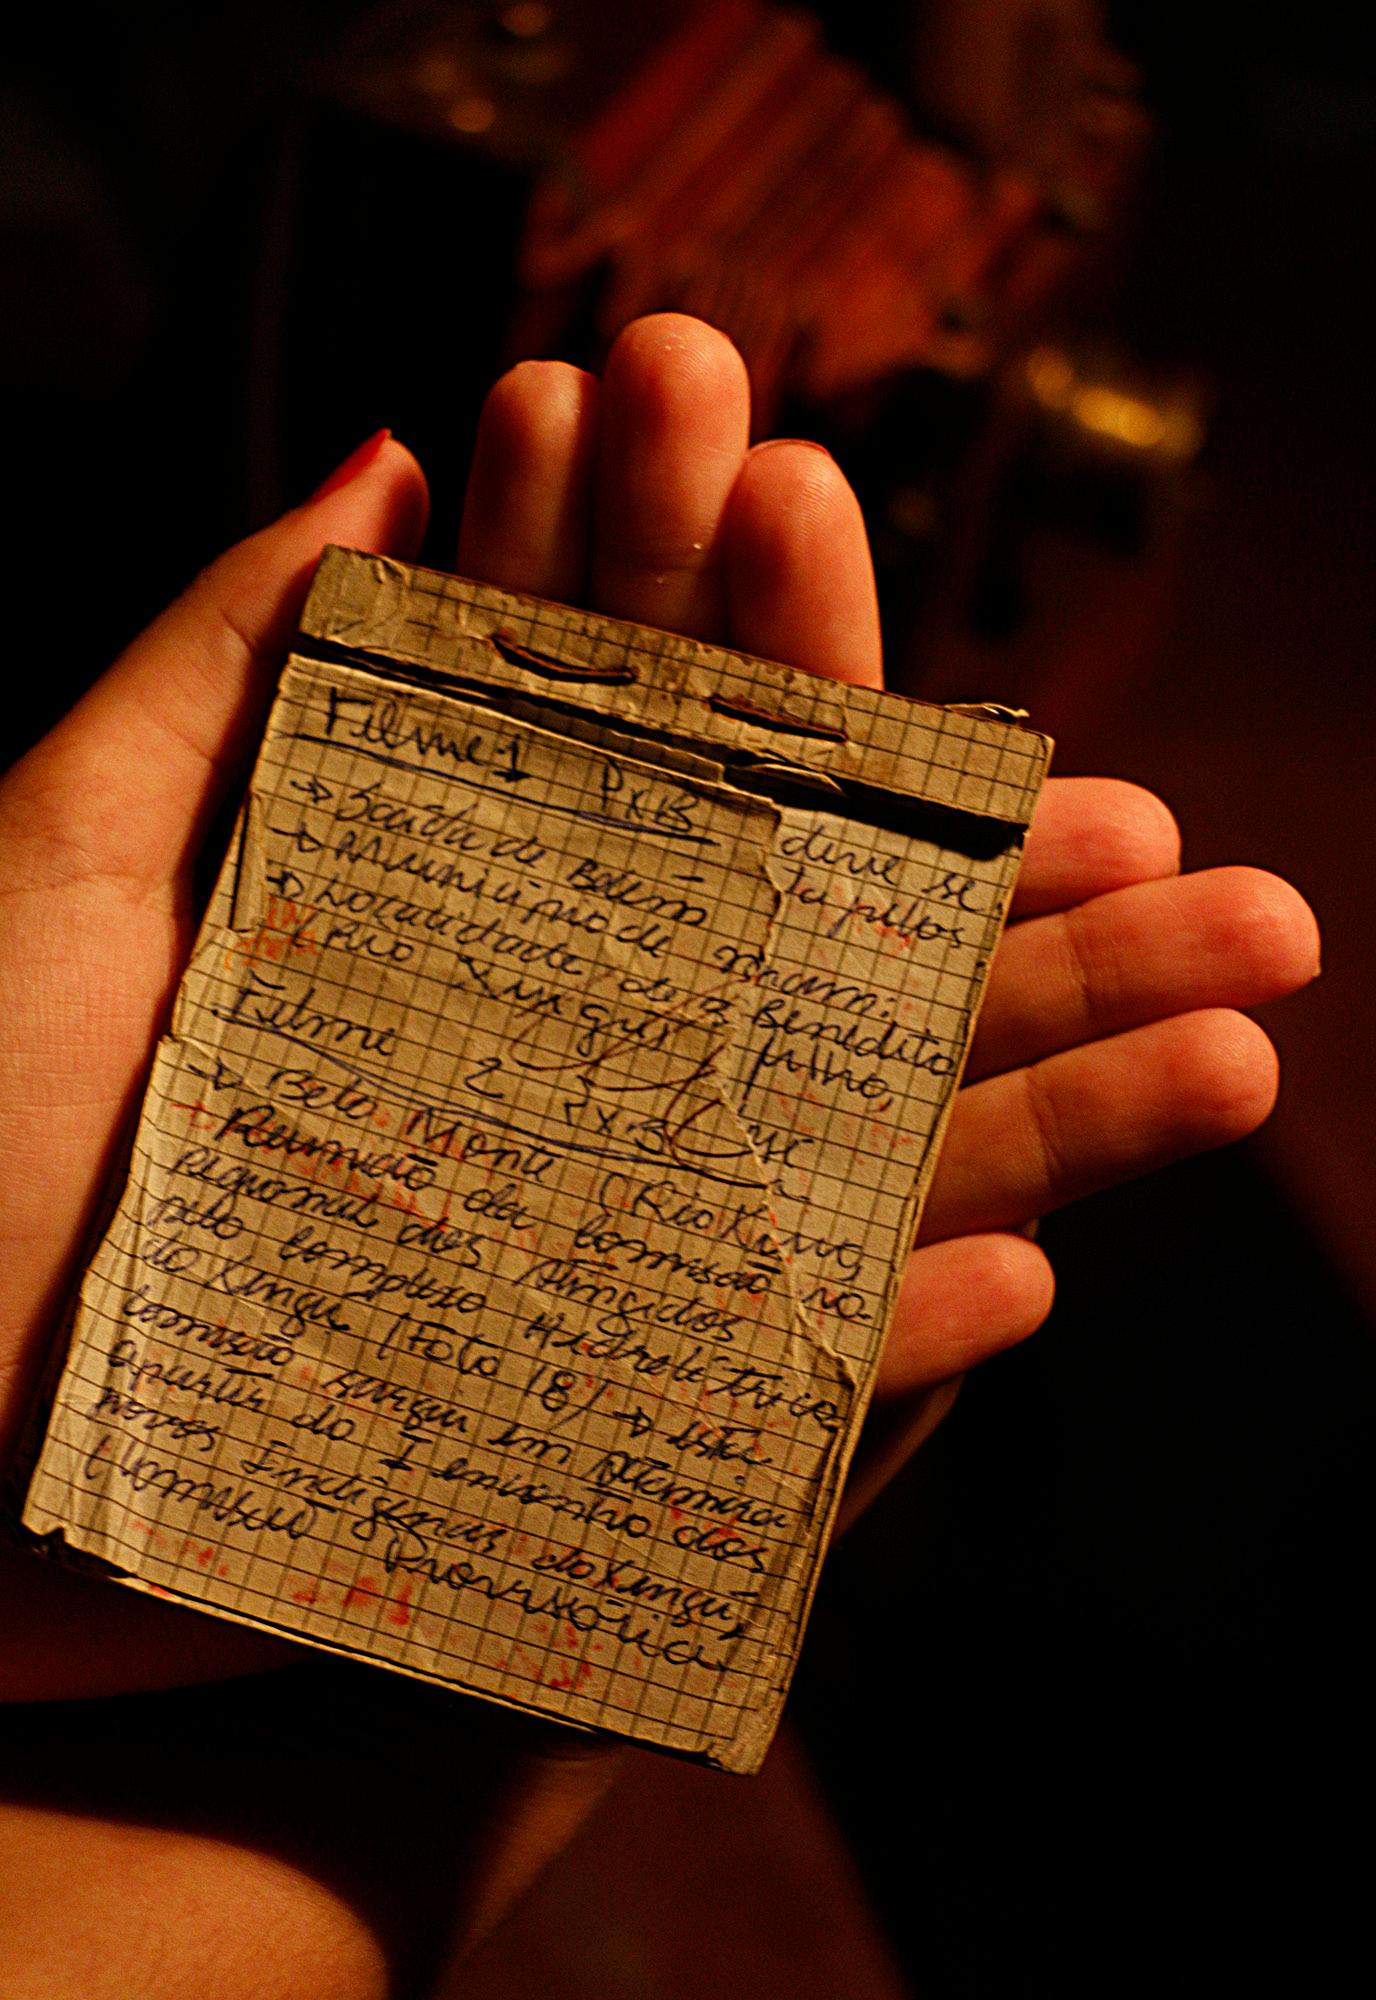 Filme 1 PxB
→ Saída de Belém
→ município de
→ Localidade de Benedito
Rio Xingu
deve se
pelos
Filme 2 PxB
→ Belo Monte (Rio Xingú)
→ Reunião da Comissão
Regional dos Atingidos
pelo complexo Hidrelétrico
do Xingu (Foto 18) → Esta
comissão surgiu em Altamira
apartir do I encontro dos
povos Indígenas do Xingú,
(Comissão Provisória